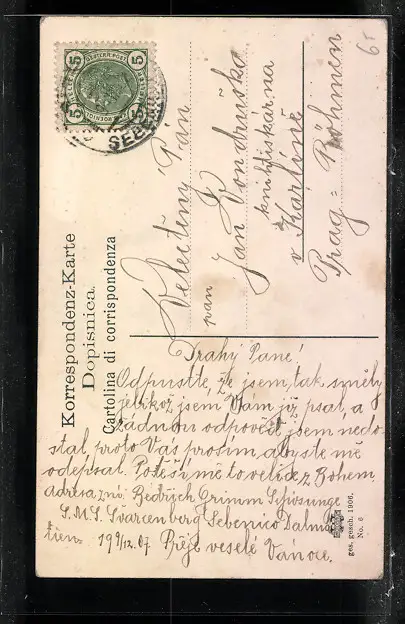 Korrespondenz-Karte
Dopisnica.
Cartolina di corrispondenza
5 5
5 5
SEBENICO
Velectěný Pán
pan
Jan Vondruška
knihtiskárna
v Karlíně
Prag = Böhmen
Drahý Pane!
Odpusťte, že jsem tak smělý
jelikož jsem Vám již psal, a
žádnou odpověď jsem nedo
stal, proto Vás prosím abyste mě
odepsal. Potěší mě to velice, z Bohem
adresa zní: Bedřich Grimm
S.M.S. Švarcenberg Sebenico Dalma
tien. 19 9/12. 07 Přeji veselé Vánoce.
ges. gesch. 1906.
No. 6